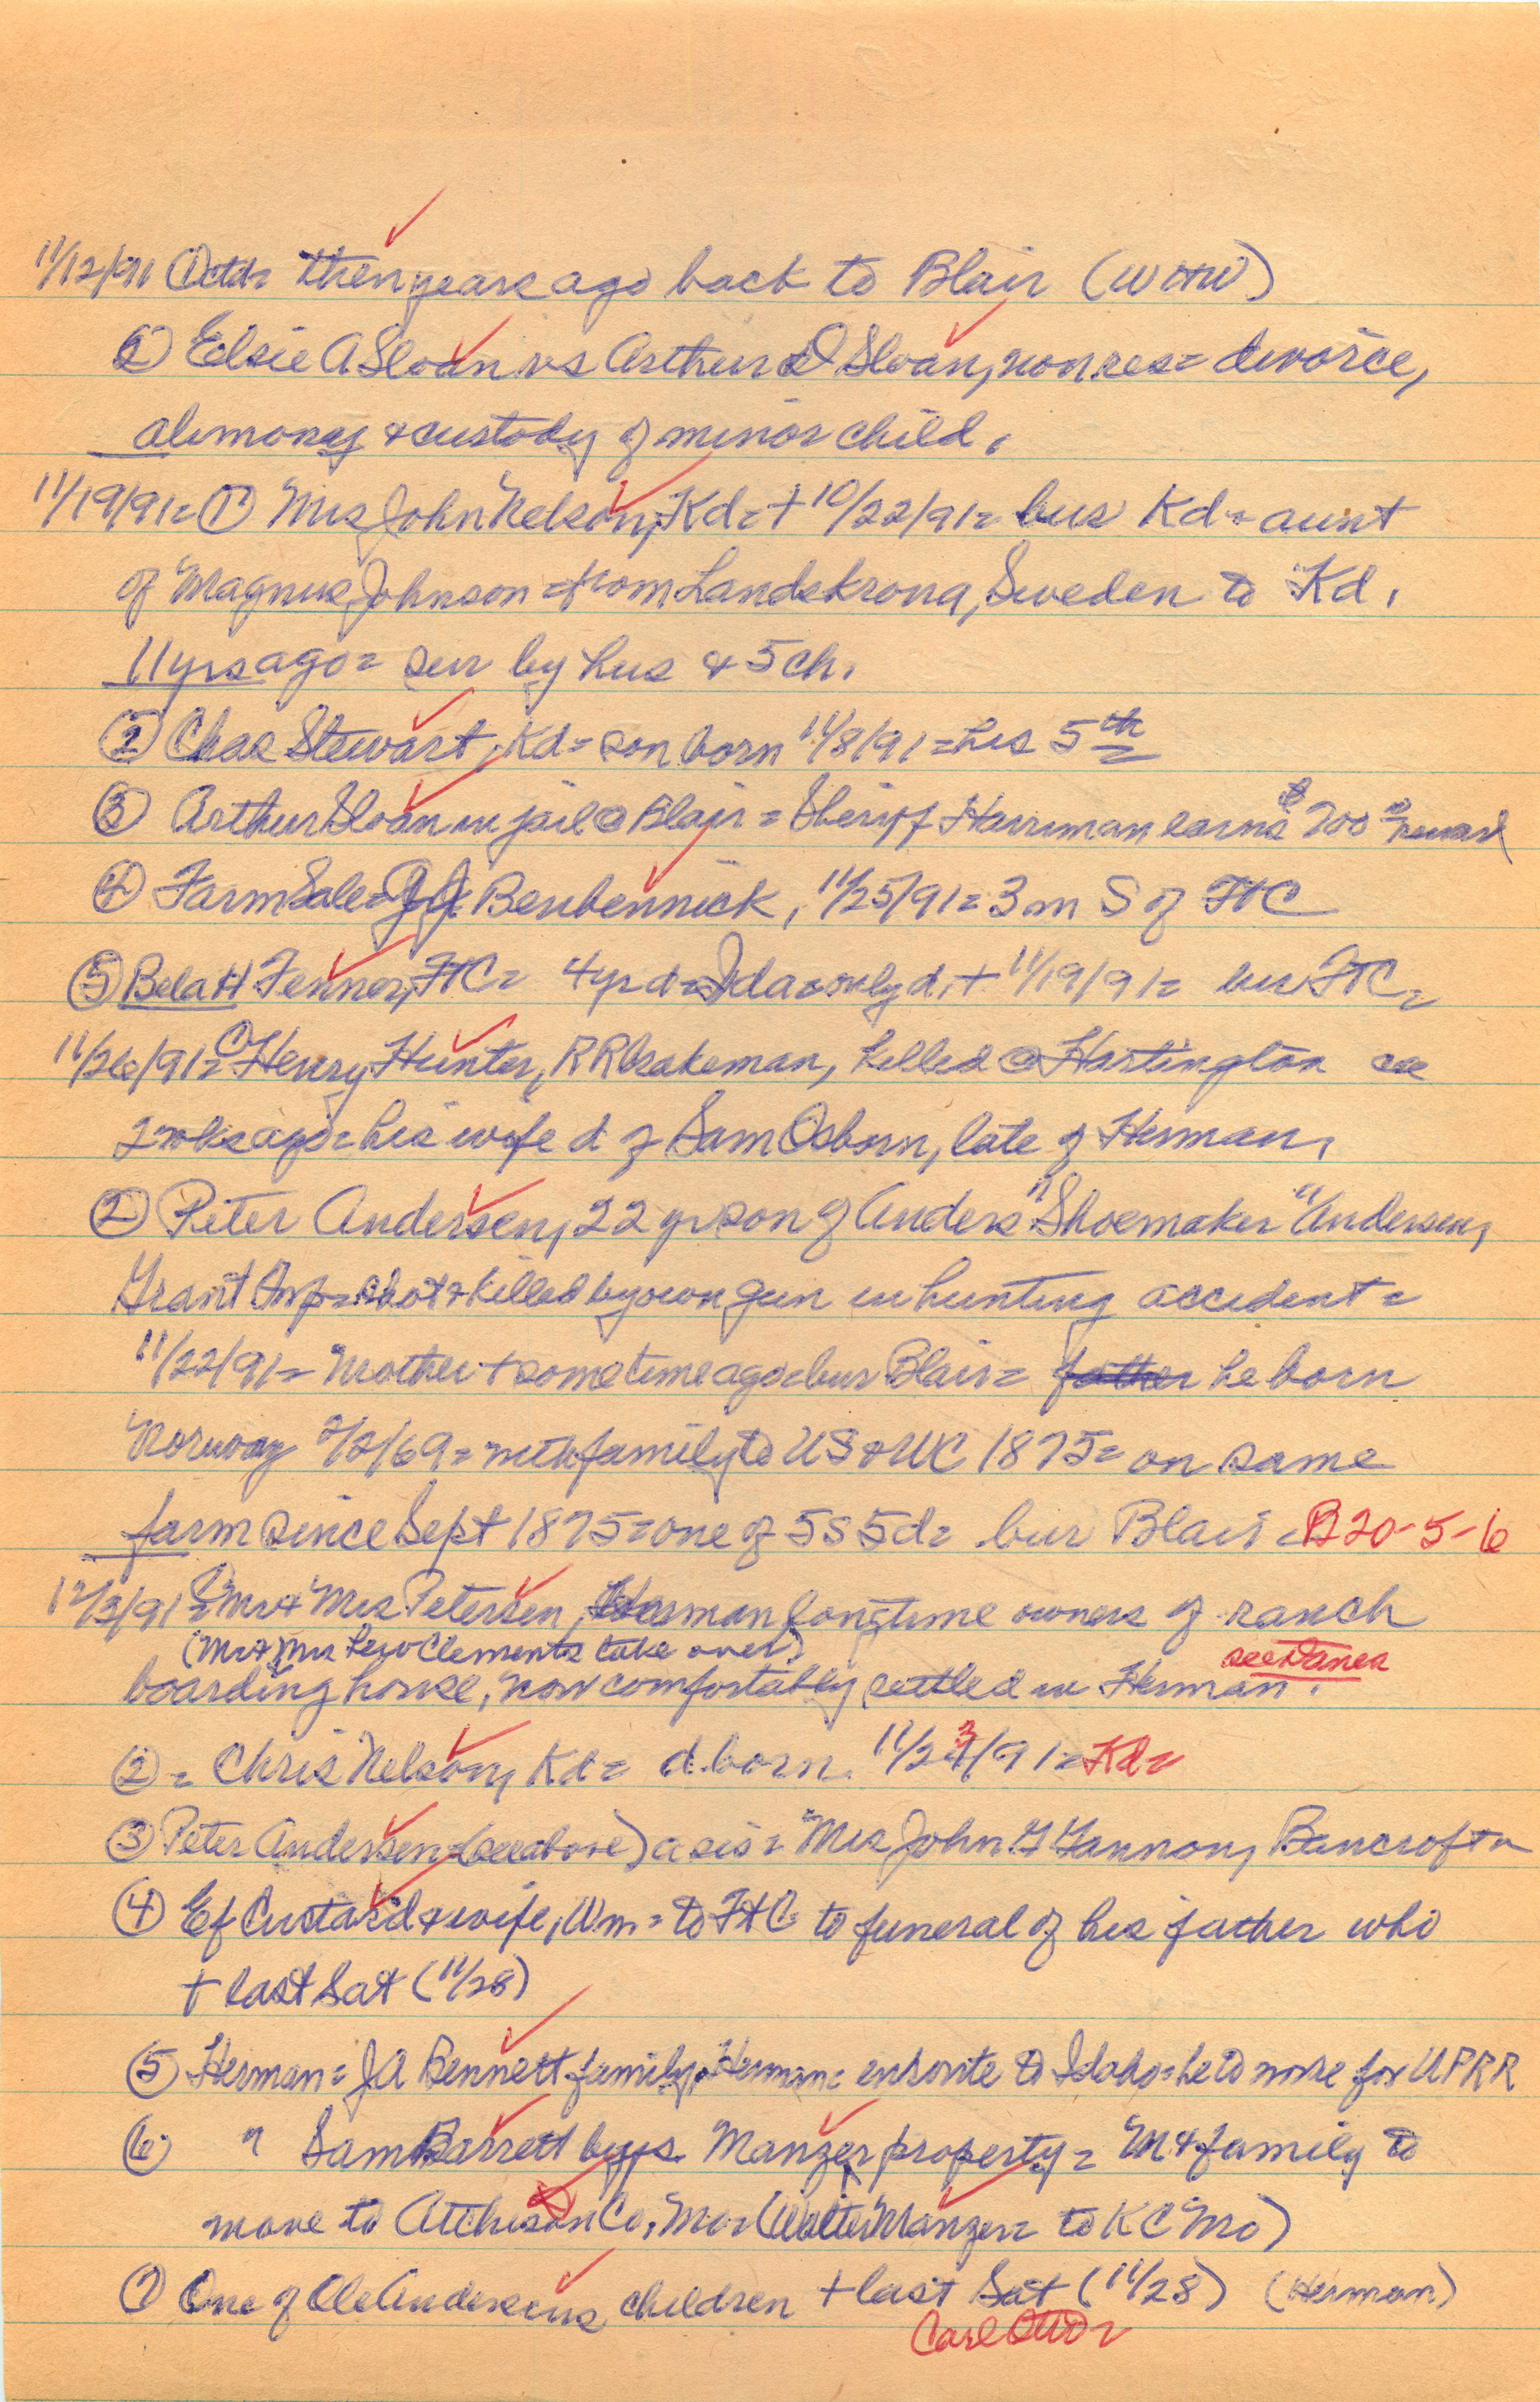 11/12/91 ① ctd= then years ago back to Blair (WHW)
② Elsie A Sloan vs Arthur D Sloan, non res= divorce,
alimony & custody of minor child.
11/19/91= ① Mrs John Nelson, Kd= + 10/22/91= bur Kd= aunt
of Magnus Johnson = from Landskrona, Sweden to Kd.
11 yrs ago= sur by hus & 5 ch.
② Chas Stewart, Kd= son born 11/8/91= his 5th
③ Arthur Sloan in jail @ Blair = Sheriff Harriman earns $200 reward
④ Farm Sale= Beubennick, 11/25/91= 3 m S of FtC
⑤ Bela H Fenner, FtC= 4 yr d= Ida= only d, + 11/19/91= bur FtC=
11/26/91= ① Henry Hunter, RR brakeman, killed @ Hartington ca
2 wks ago= his wife d of Sam Osborn, late of Herman.
② Peter Andersen, 22 yr son of Anders "Shoemaker" Andersen,
Grant Twp= shot & killed by own gun in hunting accident=
11/22/91= Mother + sometime ago= bur Blair= father he born
Norway 2/2/69= with family to US & WC 1875= on same
farm since Sept 1875= one of 5s 5d= bur Blair= B20-5-6
12/3/91= ① Mr & Mrs Petersen, Herman longtime owners of ranch
(Mr & Mrs Lew Clements take over) see Danes
boarding house, now comfortably settled in Herman.
② = Chris Nelson, Kd= d. born 11/23/91= Kd=
③ Peter Andersen= (see above) a sis= Mrs John G Gannon, Bancroft=
④ Ef Custard & wife, Wm= to FtC to funeral of his father who
+ last Sat (11/28)
⑤ Herman= JA Bennett family, Herman= enroute to Idaho= he to work for UPRR
⑥ " Sam Barrett buys Manzer property= M & family to
move to Atchison Co, Mo= (Walter Manzer= to KC Mo)
⑦ One of Ole Andersens children + last Sat (11/28) (Herman)
Carl Otto=